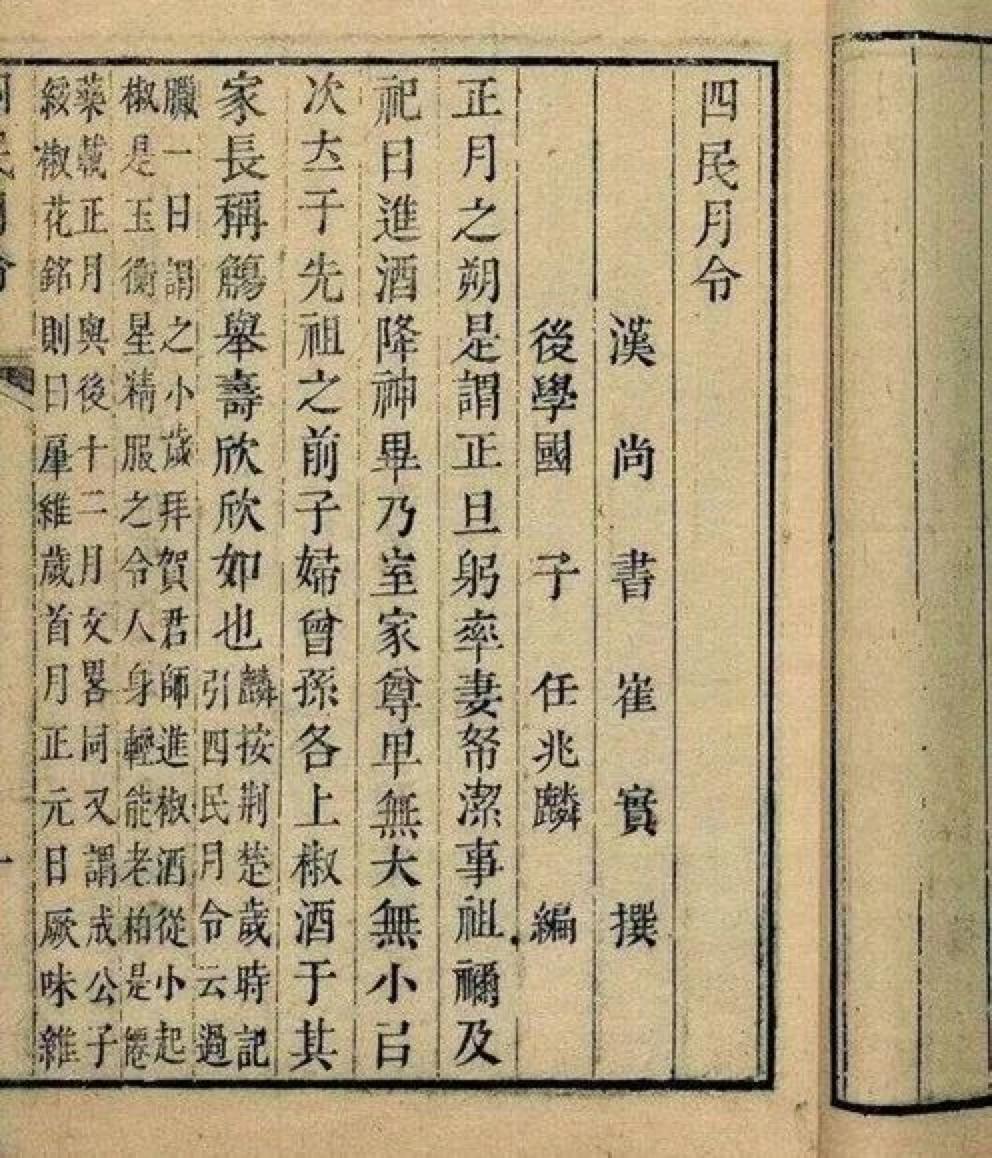 四民月令
漢尚書崔寔撰
後學國子任兆麟編
正月之朔是謂正旦躬率妻帑潔事祖禰及
祀日進酒降神畢乃室家尊卑無大無小以
次列于先祖之前子婦曾孫各上椒酒于其
家長稱觴舉壽欣欣如也
麟按荆楚歲時記
引四民月令云過
臘一日謂之小歲拜賀君師進椒酒從小起
椒是玉衡星精服之令人身輕能老柏是僊
藥載正月與後十二月文畧同又謂成公子
綏椒花銘則曰肇維歲首月正元日厥味雖
四民月令